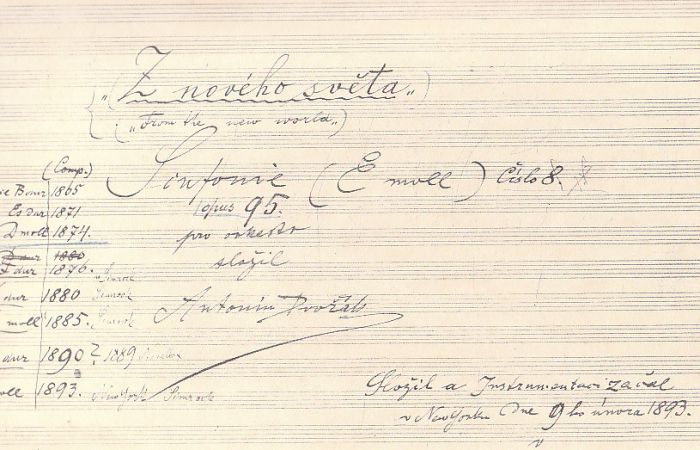 „(Z nového světa„)
(„From the new world„)
Sinfonie (E moll) Číslo 8.
opus 95.
pro orkestr
složil
Antonín Dvořák
(Comp.)
B dur 1865
Es dur 1871
D moll 1874.
D dur 1880
F dur 1876. Simrock
dur 1880 Simrock
moll 1885. Simrock
dur 1890? 1889
moll 1893. New York Simrock
Složil a Instrumentaci začal
v New Yorku Dne 9ho února 1893.